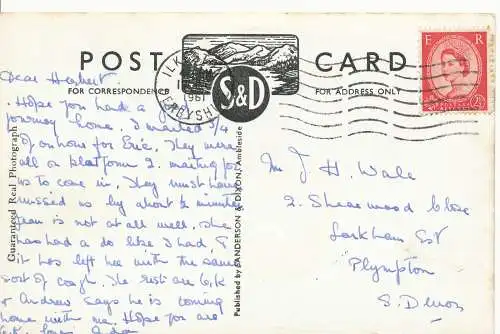 POST CARD
FOR CORRESPONDENCE
FOR ADDRESS ONLY
S&D
ILK
1961
DERBYSH
E R
POSTAGE
2½
Guaranteed Real Photograph
Published by SANDERSON & DIXON, Ambleside
Dear Herbert.
Hope you had a
journey home. I waited 3/4
of an hour for Eric. They were
all on platform 2 waiting for
us to come in. They must have
missed us by about 2 minutes
Jean is not at all well. She
has had a do like I had, &
it has left her with the same
sort of cough. The rest are O.K
& Andrew says he is coming
home with me. Hope you are
O.K. love
Mr J H. Wale
2. Shearwood Close
Larkham Est
Plympton
S. Devon